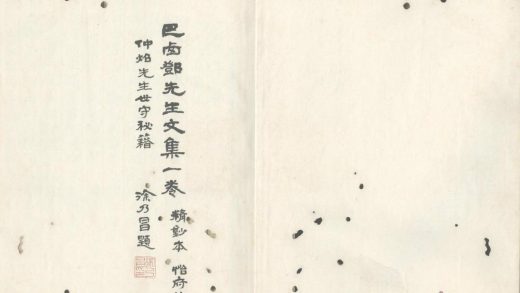 巴西鄧先生文集一卷 精鈔本 怡府
仲炤先生世守秘籍 徐乃昌題